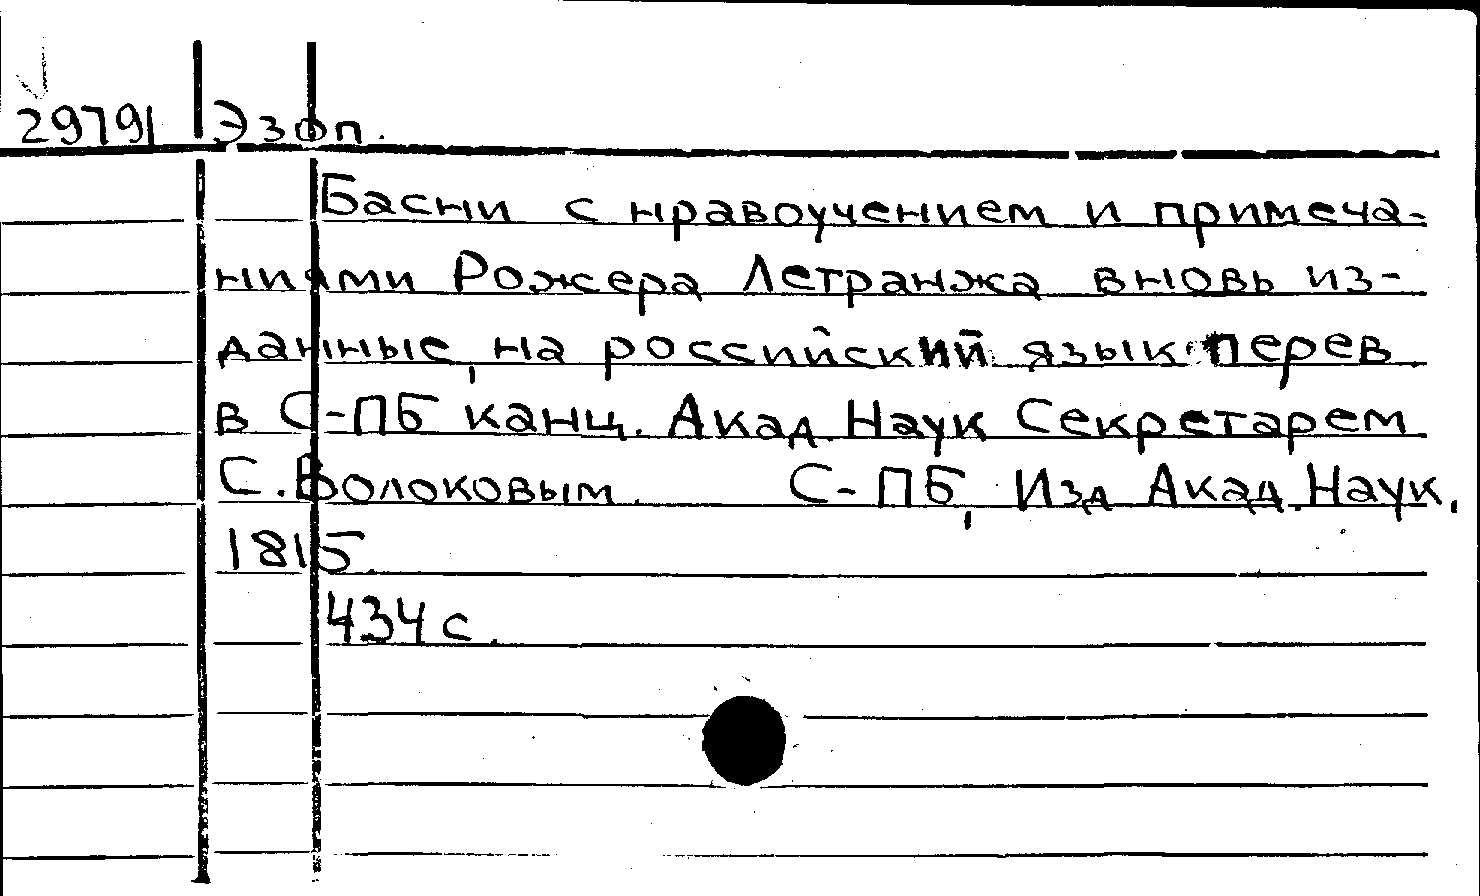 29791 Эзоп.
Басни с нравоучением и примеча-
ниями Рожера Летранжа вновь из-
данные, на российский язык перев
в С-ПБ канц. Акад. Наук Секретарем
С. Волоковым. С-ПБ, Изд Акад. Наук,
1815.
434 с.